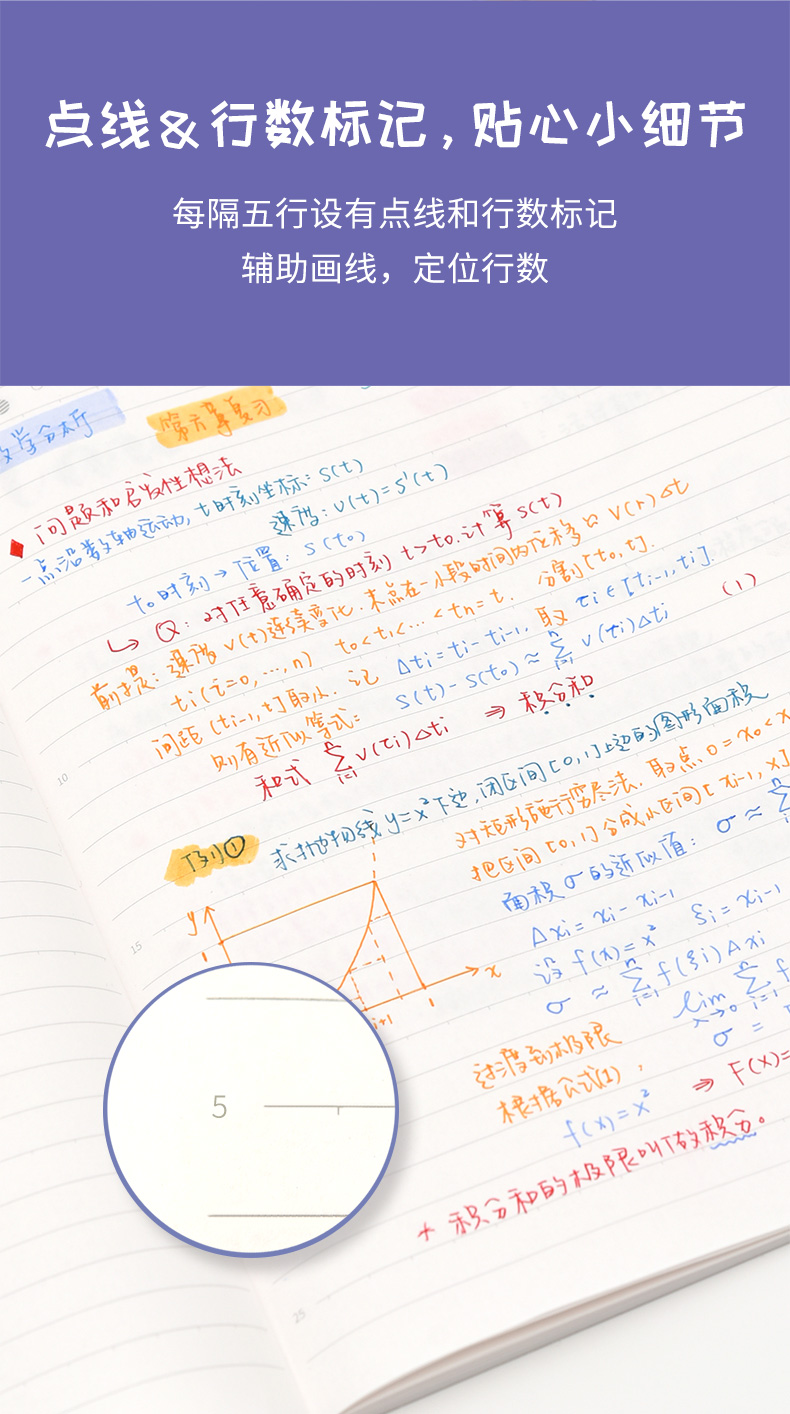 点线&行数标记，贴心小细节
每隔五行设有点线和行数标记
辅助画线，定位行数
数学分析
第六章复习
问题和启发性想法
一点沿数轴运动, t时刻坐标: S(t)
速度: v(t)=S'(t)
t₀时刻→位置: S(t₀)
Q: 对任意确定的时刻 t>t₀.计算S(t)
前提: 速度v(t)连续变化. 质点在一小段时间内位移≌v(r)Δt
t₀<t₁<…<tn=t. 分割[t₀,t].
ti(i=0,…,n) 记 Δti=ti-ti-1, 取 τi∈[ti-1,ti].
间距[ti-1,ti]取
则有近似等式: S(t)-S(t₀)≈∑ⁿᵢ₌₁v(τi)Δti (1)
和式 ∑ⁿᵢ₌₁v(τi)Δti ⇒ 积分和
10
例① 求抛物线y=x²下边,闭区间[0,1]上边的图形面积
对矩形施行穷尽法. 取点 0=x₀<x
把区间[0,1]分成小区间[xi-1,x]
面积σ的近似值: σ≈∑
Δxi=xi-xi-1 ξi=xi-1
设f(x)=x²
σ≈∑ⁿᵢ₌₁f(ξi)Δxi
lim ∑ⁿᵢ₌₁f
σ=
y
1
x
i+1
1
15
过渡到极限
根据公式(1),
f(x)=x² ⇒ F(x)=
积分和的极限叫做积分。
5
25